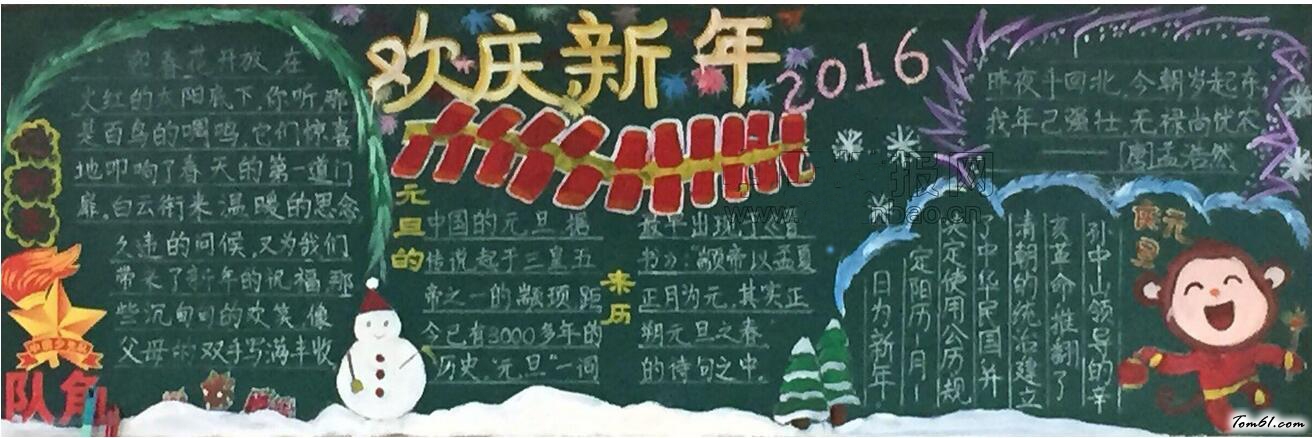 欢庆新年
2016
迎春花开放,在
火红的太阳底下,你听,那
是百鸟的啁鸣,它们惊喜
地叩响了春天的第一道门
扉,白云衔来温暖的思念
久违的问候,又为我们
带来了新年的祝福,那
些沉甸甸的欢笑,像
父母的双手写满丰收
队角
元旦的
来历
中国的元旦,据
传说起于三皇五
帝之一的颛顼,距
今已有3000多年的
历史,元旦"一词
最早出现于《晋
书》:颛帝以孟夏
正月为元,其实正
朔元旦之春"
的诗句之中.
昨夜斗回北,今朝岁起东
我年己强壮,无禄尚忧农
——[唐]孟浩然
庆元旦
孙中山领导的辛
亥革命,推翻了
清朝的统治,建立
了中华民国,并
决定使用公历,规
定阳历一月一
日为新年
报网
bao.cn
Tom61.com